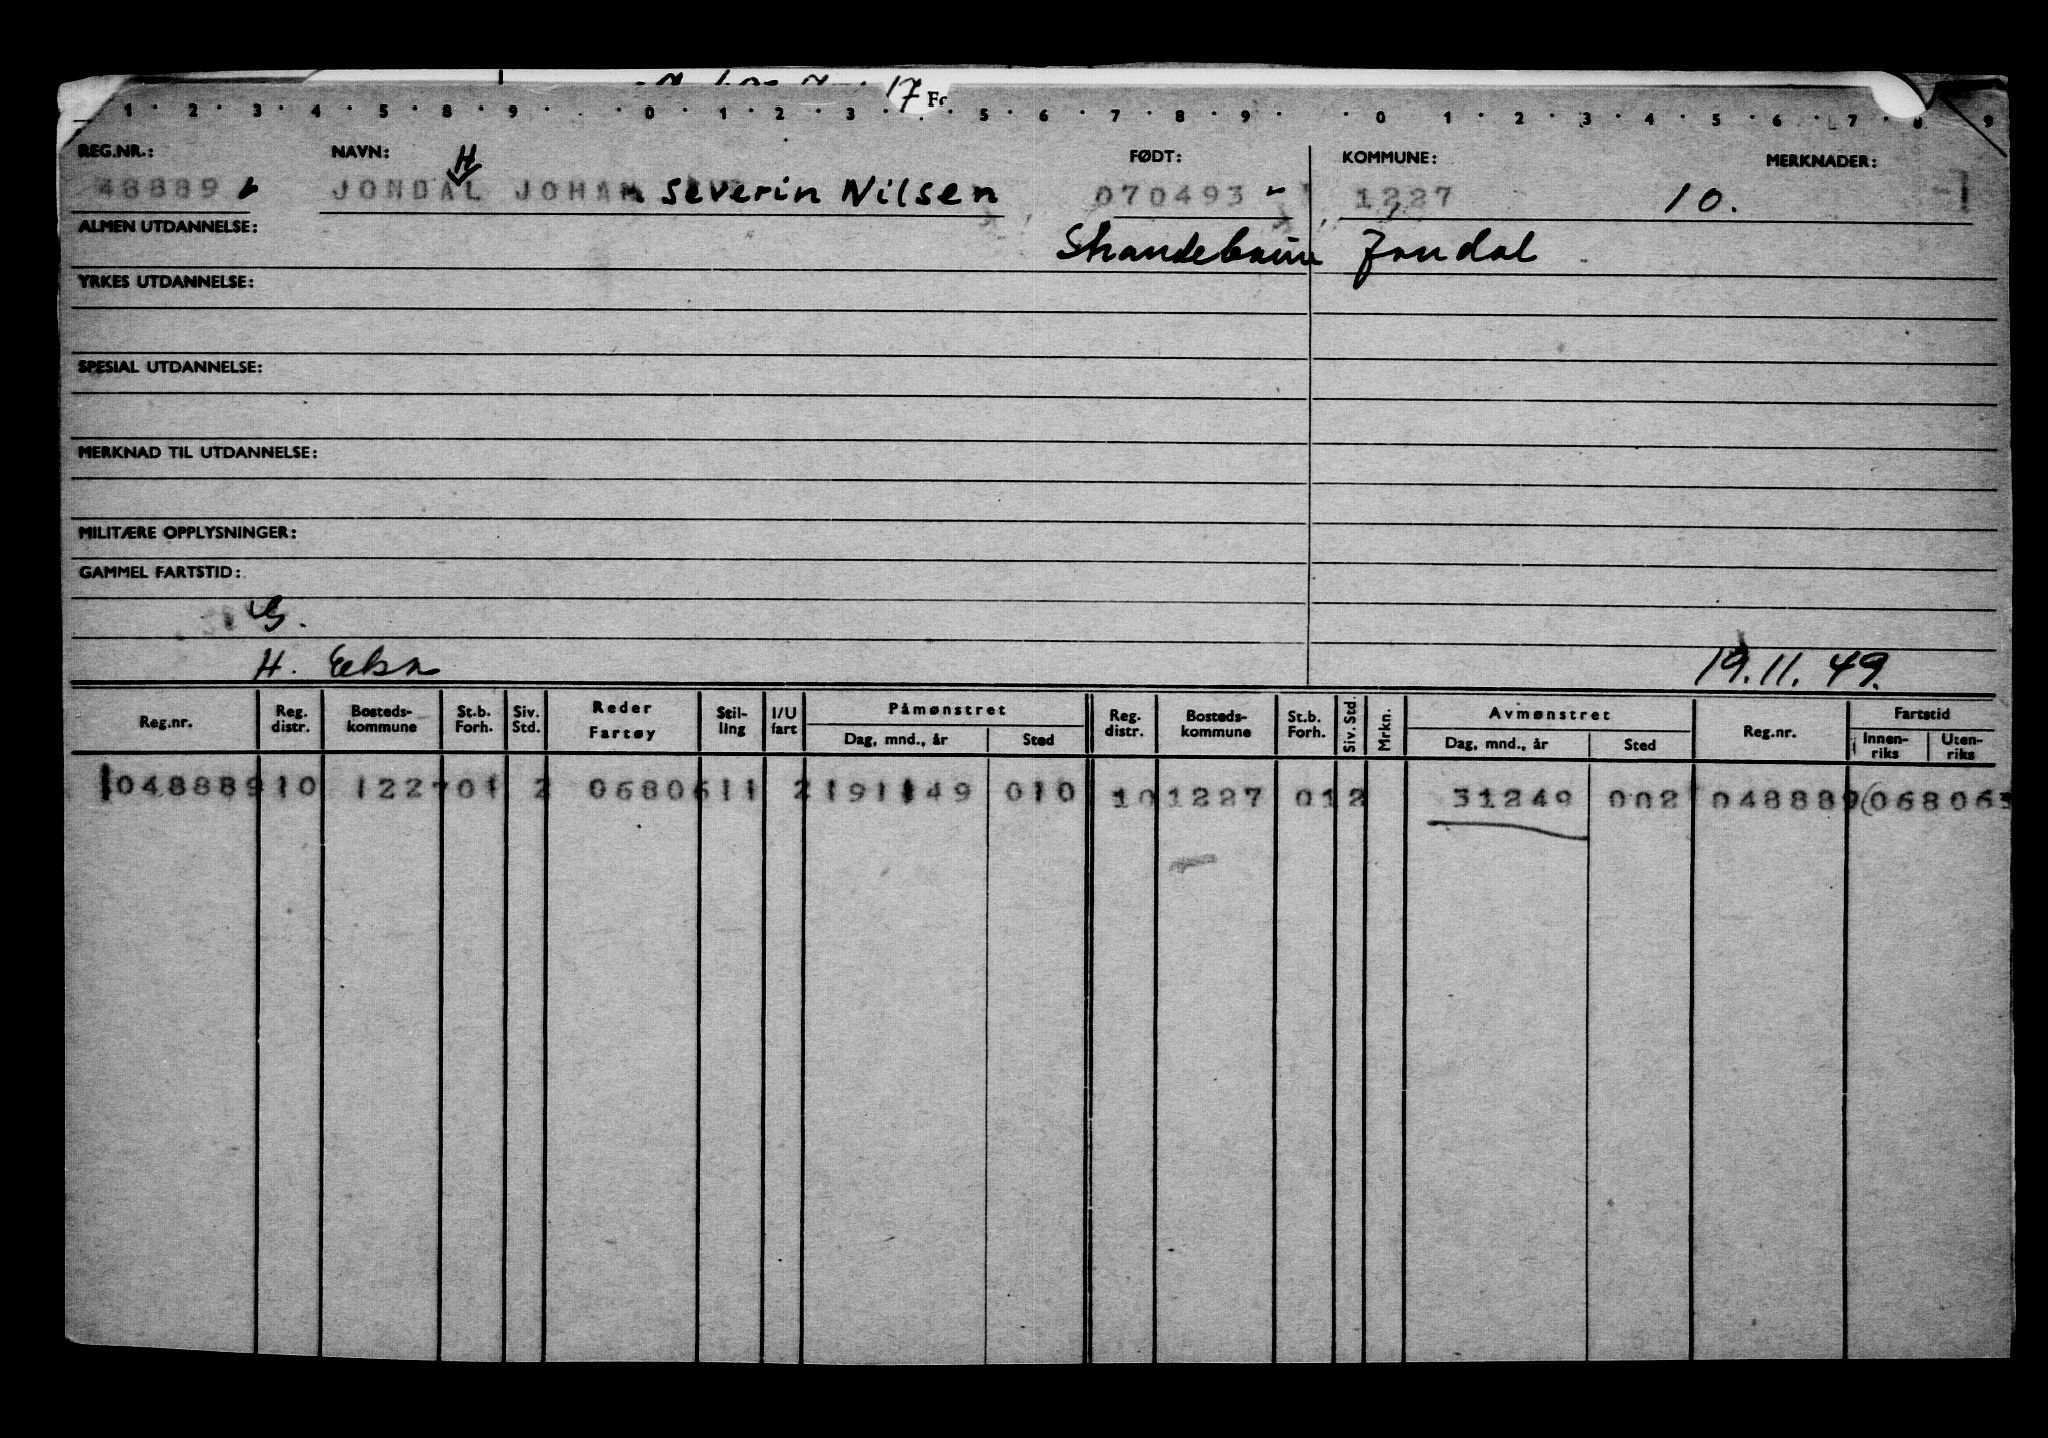 17 Fo
1 2 3 4 5 8 9 0 1 2 3 5 6 7 8 9 0 1 2 3 4 5 6 7 8 9
REG.NR.: NAVN: H FØDT: KOMMUNE: MERKNADER:
48889 JONDAL JOHAN Severin Nilsen 070493 1227 10.
ALMEN UTDANNELSE:
Jondal
YRKES UTDANNELSE:
SPESIAL UTDANNELSE:
MERKNAD TIL UTDANNELSE:
MILITÆRE OPPLYSNINGER:
GAMMEL FARTSTID:
H. 19.11.49.
Reg.nr. Reg. distr. Bosteds-kommune St.b. Forh. Siv. Std. Reder Fartøy Stil-ling I/U fart Påmønstret Dag, mnd., år Sted Reg. distr. Bosteds-kommune St.b. Forh. Siv. Std. Mrkn. Avmønstret Dag, mnd., år Sted Reg.nr. Fartstid Innen-riks Uten-riks
048889 10 1227 01 2 06806 11 2 191149 010 10 1227 01 2 31249 002 048889 068063